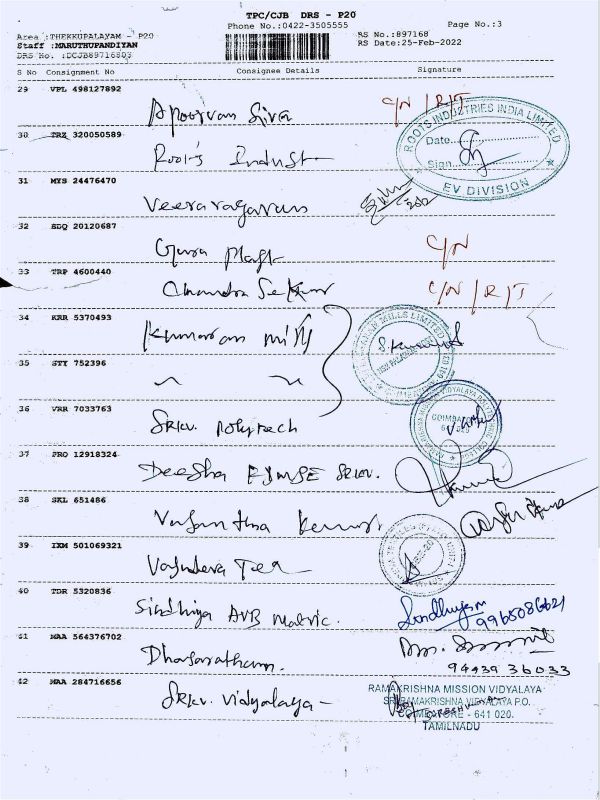 TPC/CJB DRS - P20
Phone No.:0422-3505555 Page No.:3
Area :THEKKUPALAYAM - P20 RS No.:897168
Staff :MARUTHUPANDIYAN RS Date:25-Feb-2022
DRS No. :DCJB89716803
S No Consignment No Consignee Details Signature
29 VPL 498127892
Apoorvan Siva C/N / R/T
30 TRZ 320050589
Roots Indust
ROOTS INDUSTRIES INDIA LIMITED
Date
Sign
EV DIVISION
31 MYS 24476470
Veeraragavan
32 EDQ 20120687
Guru Plast C/N
33 TRP 4600440
Chandra Sekar C/N / R/T
34 KRR 5370493
Kumaran mill
MILLS LIMITED
35 STY 752396
36 VRR 7033763
SRKV. Polytech
37 PRO 12918324
Deesha SRKV.
38 SKL 651486
Vasantha Kumar
39 IXM 501069321
Vasudeva Tea
40 TDR 5320836
Sindhiya AVB Matric. Sindhiya
9965086621
41 MAA 564376702
Dhasaratham.
94439 36033
42 MAA 284716656
SRKV. Vidyalaya -
RAMAKRISHNA MISSION VIDYALAYA
SRI RAMAKRISHNA VIDYALAYA P.O.
COIMBATORE - 641 020.
TAMILNADU